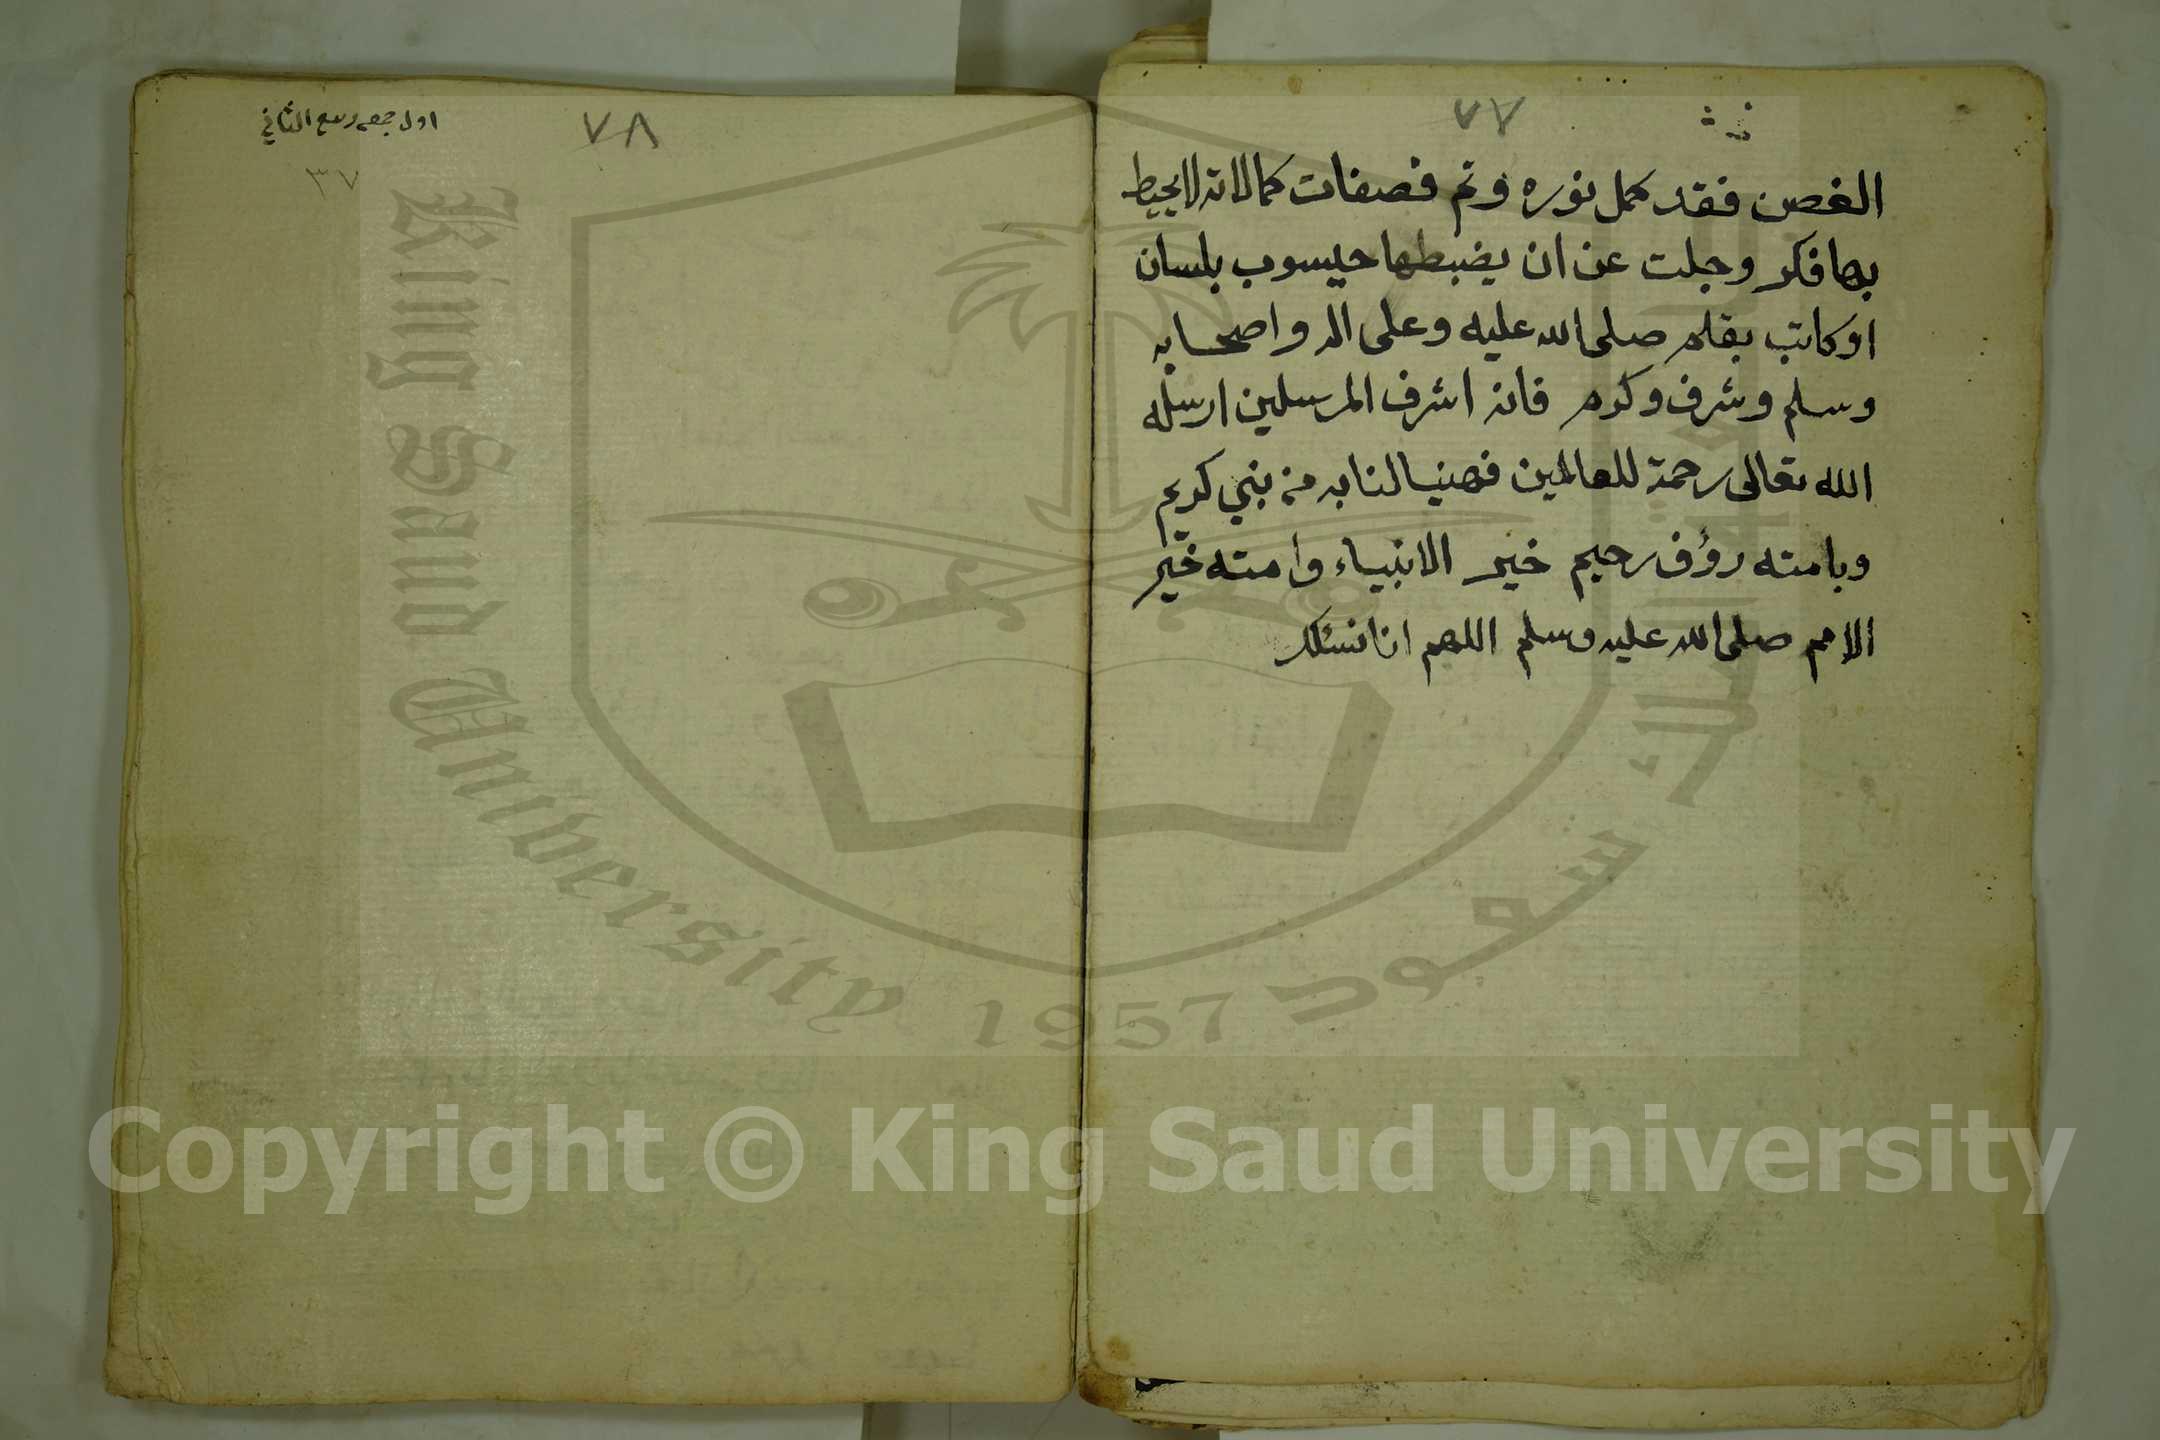 ٧٧
الغصن فقد كمل نوره وتم فصفات كمالاته لا يحيط
بها فكر وجلت عن ان يضبطها حيسوب بلسان
او كاتب بقلم صلى الله عليه وعلى اله واصحابه
وسلم وشرف وكرم فانه اشرف المرسلين ارسله
الله تعالى رحمة للعالمين فهنيا لنا به من نبي كريم
وبامته رؤف رحيم خير الانبياء وامته خير
الامم صلى الله عليه وسلم اللهم انا نسئلك
٧٨
اول جمعه ربيع الثاني
٣٧
King Saud University 1957
سعود
Copyright © King Saud University